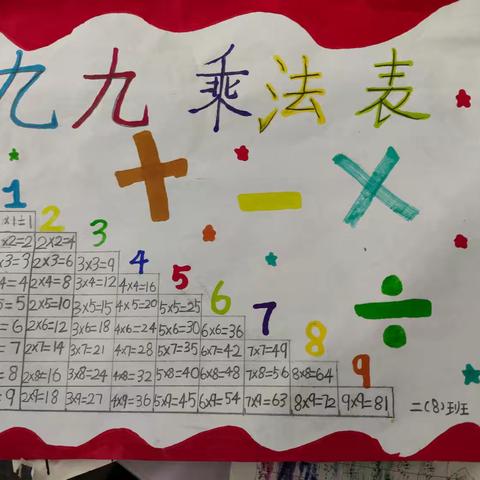 九九乘法表
+ − ×
÷
1 2 3 4 5 6 7 8 9
×1=1
×2=2 2×2=4
×3=3 2×3=6 3×3=9
4=4 2×4=8 3×4=12 4×4=16
5=5 2×5=10 3×5=15 4×5=20 5×5=25
=6 2×6=12 3×6=18 4×6=24 5×6=30 6×6=36
=7 2×7=14 3×7=21 4×7=28 5×7=35 6×7=42 7×7=49
=8 2×8=16 3×8=24 4×8=32 5×8=40 6×8=48 7×8=56 8×8=64
=9 2×9=18 3×9=27 4×9=36 5×9=45 6×9=54 7×9=63 8×9=72 9×9=81
二(8)班